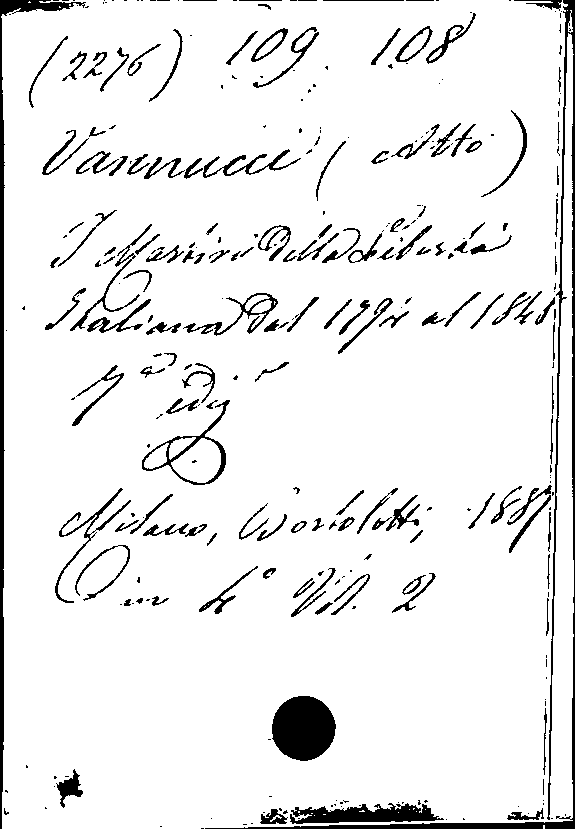 (2276) 109 108
Vannucci (Atto)
I Martiri della Libertà
Italiana dal 1794 al 1848
7ª ediz
Milano, Bortolotti, 1887
in 4° Vol. 2